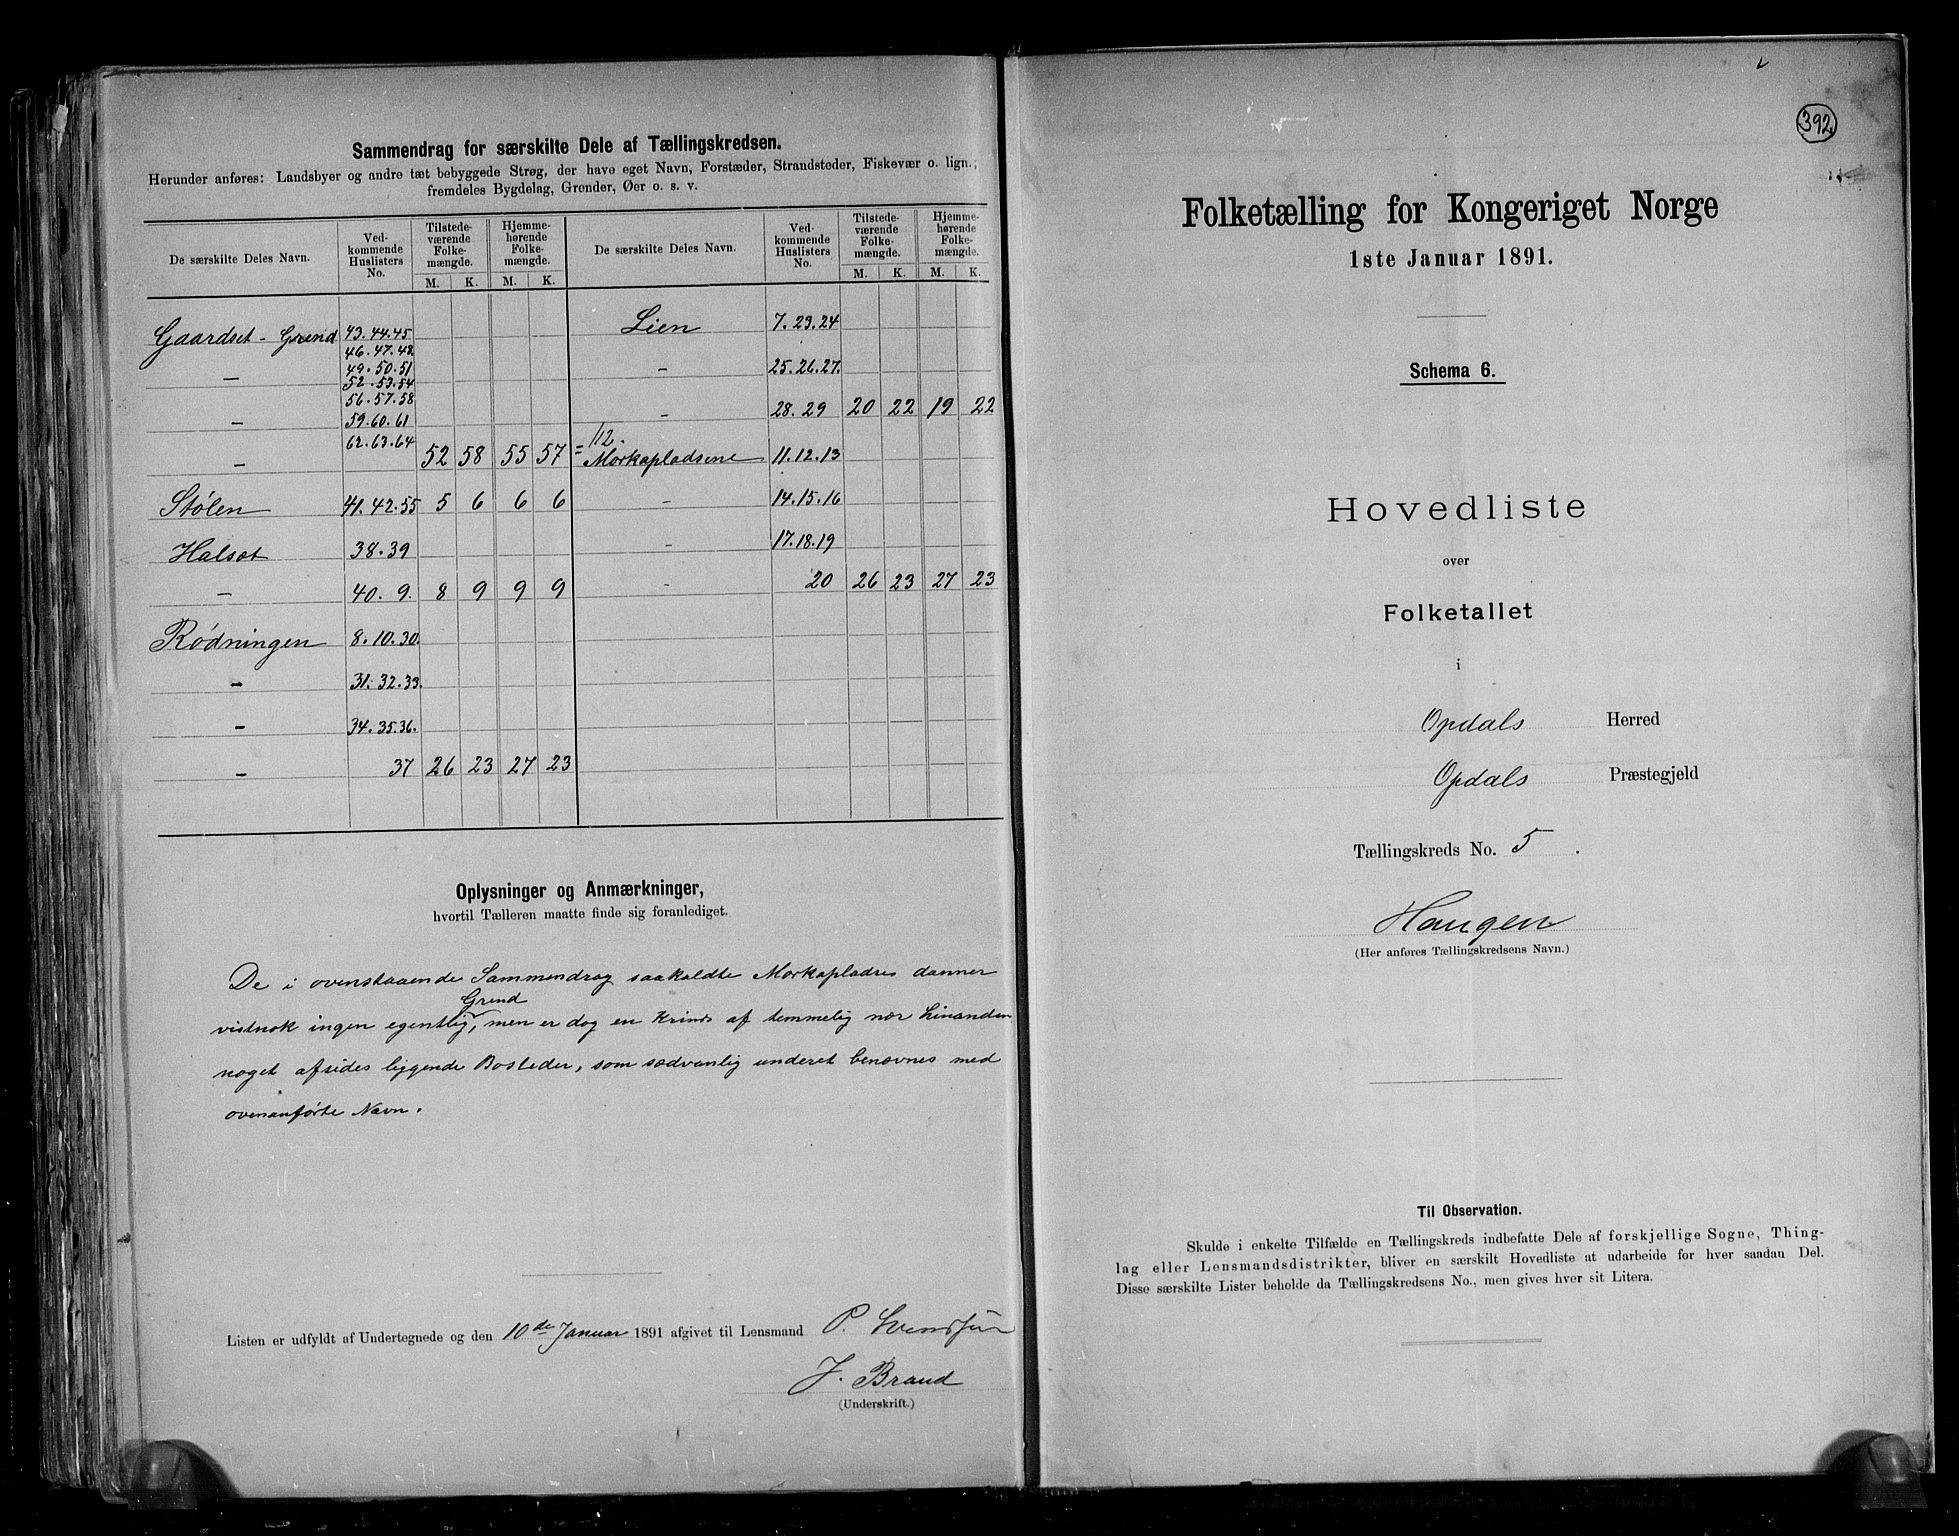 Sammendrag for særskilte Dele af Tællingskredsen.
Herunder anføres: Landsbyer og andre tæt bebyggede Strøg, der have eget Navn, Forstæder, Strandsteder, Fiskevær o. lign.;
fremdeles Bygdelag, Grender, Øer o. s. v.
De særskilte Deles Navn. Ved-kommende Huslisters No. Tilstede-værende Folke-mængde. Hjemme-hørende Folke-mængde. De særskilte Deles Navn. Ved-kommende Huslisters No. Tilstede-værende Folke-mængde. Hjemme-hørende Folke-mængde.
M. K. M. K. M. K. M. K.
Gaardset - Grend 43.44.45
46.47.48.
— 49.50.51
52.53.54
56.57.58
— 59.60.61
62.63.64
— 52 58 55 57
Stølen 41.42.55 5 6 6 6
Halset 38.39
— 40. 9. 8 9 9 9
Rødningen 8.10.30.
— 31.32.33.
— 34.35.36.
— 37 26 23 27 23
Lien 7.23.24
- 25.26.27.
- 28.29 20 22 19 22
112.
= Morkapladsene 11.12.13
- 14.15.16
- 17.18.19
- 20 26 23 27 23
Oplysninger og Anmærkninger,
hvortil Tælleren maatte finde sig foranlediget.
De i ovenstaaende Sammendrag saakaldte Morkapladses danner
Grend
vistnok ingen egentlig, men er dog en Krinds af temmelig nær hinanden
noget afsides liggende Bosteder, som sædvanlig underet benævnes med
ovenanførte Navn.
Listen er udfyldt af Undertegnede og den 10de Januar 1891 afgivet til Lensmand P.
J. Braud
(Underskrift.)
392
Folketælling for Kongeriget Norge
1ste Januar 1891.
Schema 6.
Hovedliste
over
Folketallet
i
Opdals Herred
Opdals Præstegjeld
Tællingskreds No. 5.
Haugen
(Her anføres Tællingskredsens Navn.)
Til Observation.
Skulde i enkelte Tilfælde en Tællingskreds indbefatte Dele af forskjellige Sogne, Thing-
lag eller Lensmandsdistrikter, bliver en særskilt Hovedliste at udarbeide for hver saadan Del.
Disse særskilte Lister beholde da Tællingskredsens No., men gives hver sit Litera.